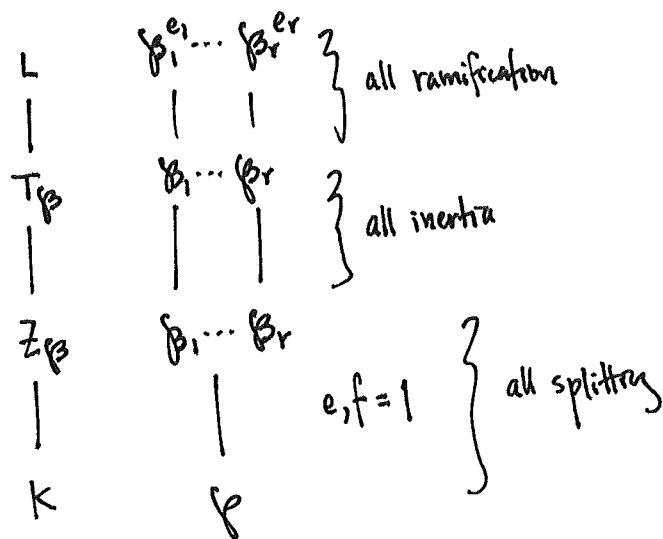 L 𝔓₁^{e₁} ⋯ 𝔓ᵣ^{eᵣ} } all ramification
T_𝔓 𝔓₁ ⋯ 𝔓ᵣ } all inertia
Z_𝔓 𝔓₁ ⋯ 𝔓ᵣ
e, f = 1 } all splitting
K ℘